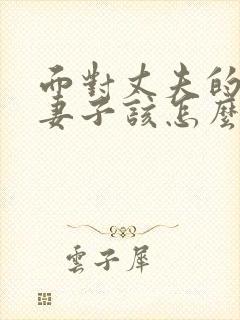 而對丈夫的
妻子該怎麼
雲子犀